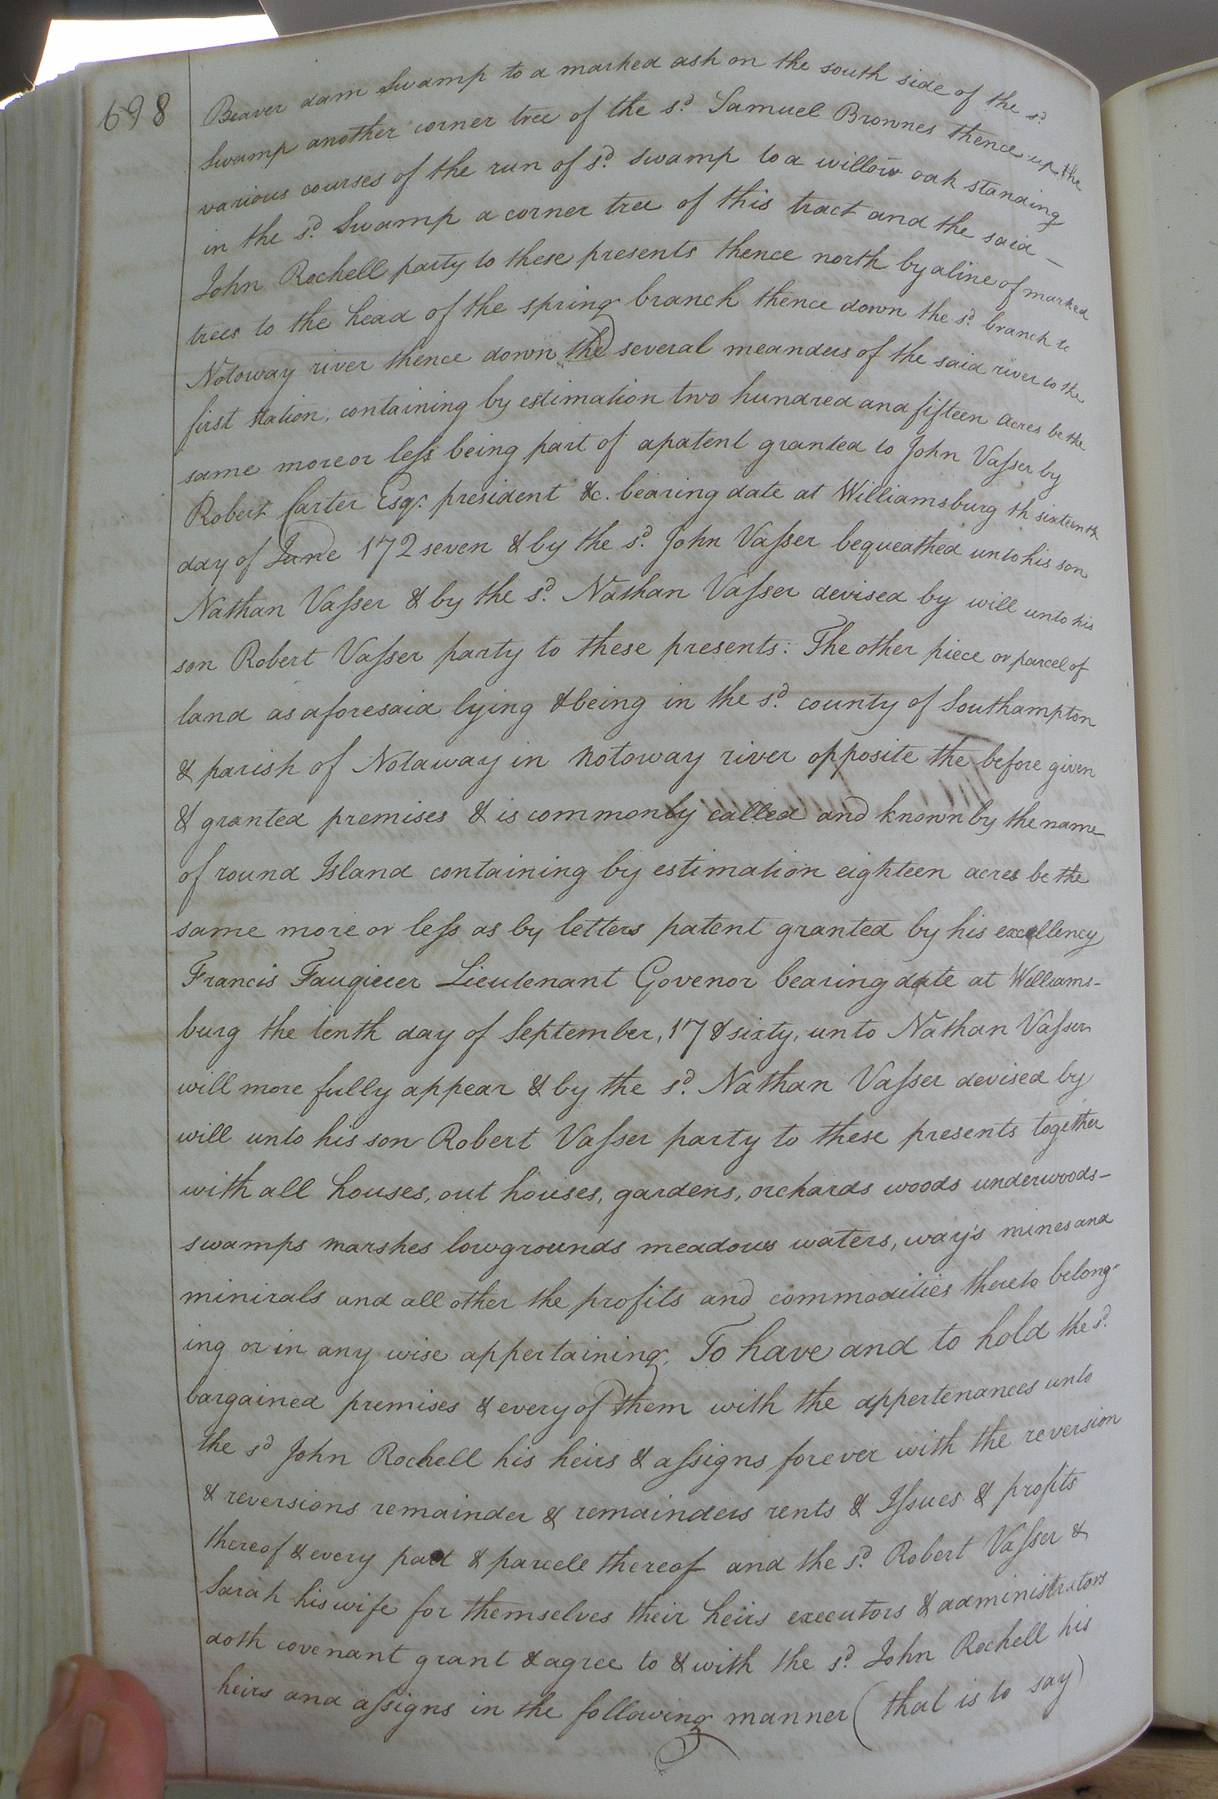 698
Beaver dam Swamp to a marked ash on the south side of the sd.
Swamp another corner tree of the sd. Samuel Brownes thence up the
various courses of the run of sd. swamp to a willow oak standing
in the sd. Swamp a corner tree of this tract and the said –
John Rochell party to these presents thence north by a line of marked
trees to the head of the spring branch thence down the sd. branch to
Notoway river thence down the several meanders of the said river to the
first station, containing by estimation two hundred and fifteen acres be the
same more or less being part of a patent granted to John Vasser by
Robert Carter Esqr. president &c. bearing date at Williamsburg th sixteenth
day of June 172 seven & by the sd. John Vasser bequeathed unto his son
Nathan Vasser & by the sd. Nathan Vasser devised by will unto his
son Robert Vasser party to these presents: The other piece or parcel of
land as aforesaid lying & being in the sd. county of Southampton
& parish of Notaway in Notoway river opposite the before given
& granted premises & is commonly called and known by the name
of round Island containing by estimation eighteen acres be the
same more or less as by letters patent granted by his excellency
Francis Fauqieer Lieutenant Govenor bearing date at Williams-
burg the tenth day of September, 17 & sixty, unto Nathan Vasser
will more fully appear & by the sd. Nathan Vasser devised by
will unto his son Robert Vasser party to these presents together
with all houses, out houses, gardens, orchards woods underwoods–
swamps marshes lowgrounds meadows waters, way's mines and
minirals and all other the profits and commodities thereto belong-
ing or in any wise appertaining. To have and to hold the sd.
bargained premises & every of them with the appertenances unto
the sd John Rochell his heirs & assigns forever with the reversion
& reversions remainder & remainders rents & Issues & profits
thereof & every part & parcele thereof and the sd. Robert Vasser &
Sarah his wife for themselves their heirs executors & administrators
doth covenant grant & agree to & with the sd. John Rochell his
heirs and assigns in the following manner (that is to say)